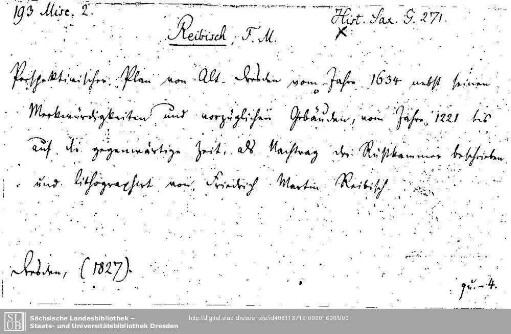 193 Misc. 2.
Hist. Sax. G. 271.
Reibisch, F. M.
Perspektivischer Plan von Alt-Dresden vom Jahre 1634 nebst seinen
Merkwürdigkeiten und vorzüglichen Gebäuden, vom Jahre 1221 bis
auf die gegenwärtige Zeit, als Nachtrag der Rüstkammer beschrieben
und lithographirt von Friedrich Martin Reibisch.
Dresden, (1827).
qu.-4.
Sächsische Landesbibliothek –
Staats- und Universitätsbibliothek Dresden